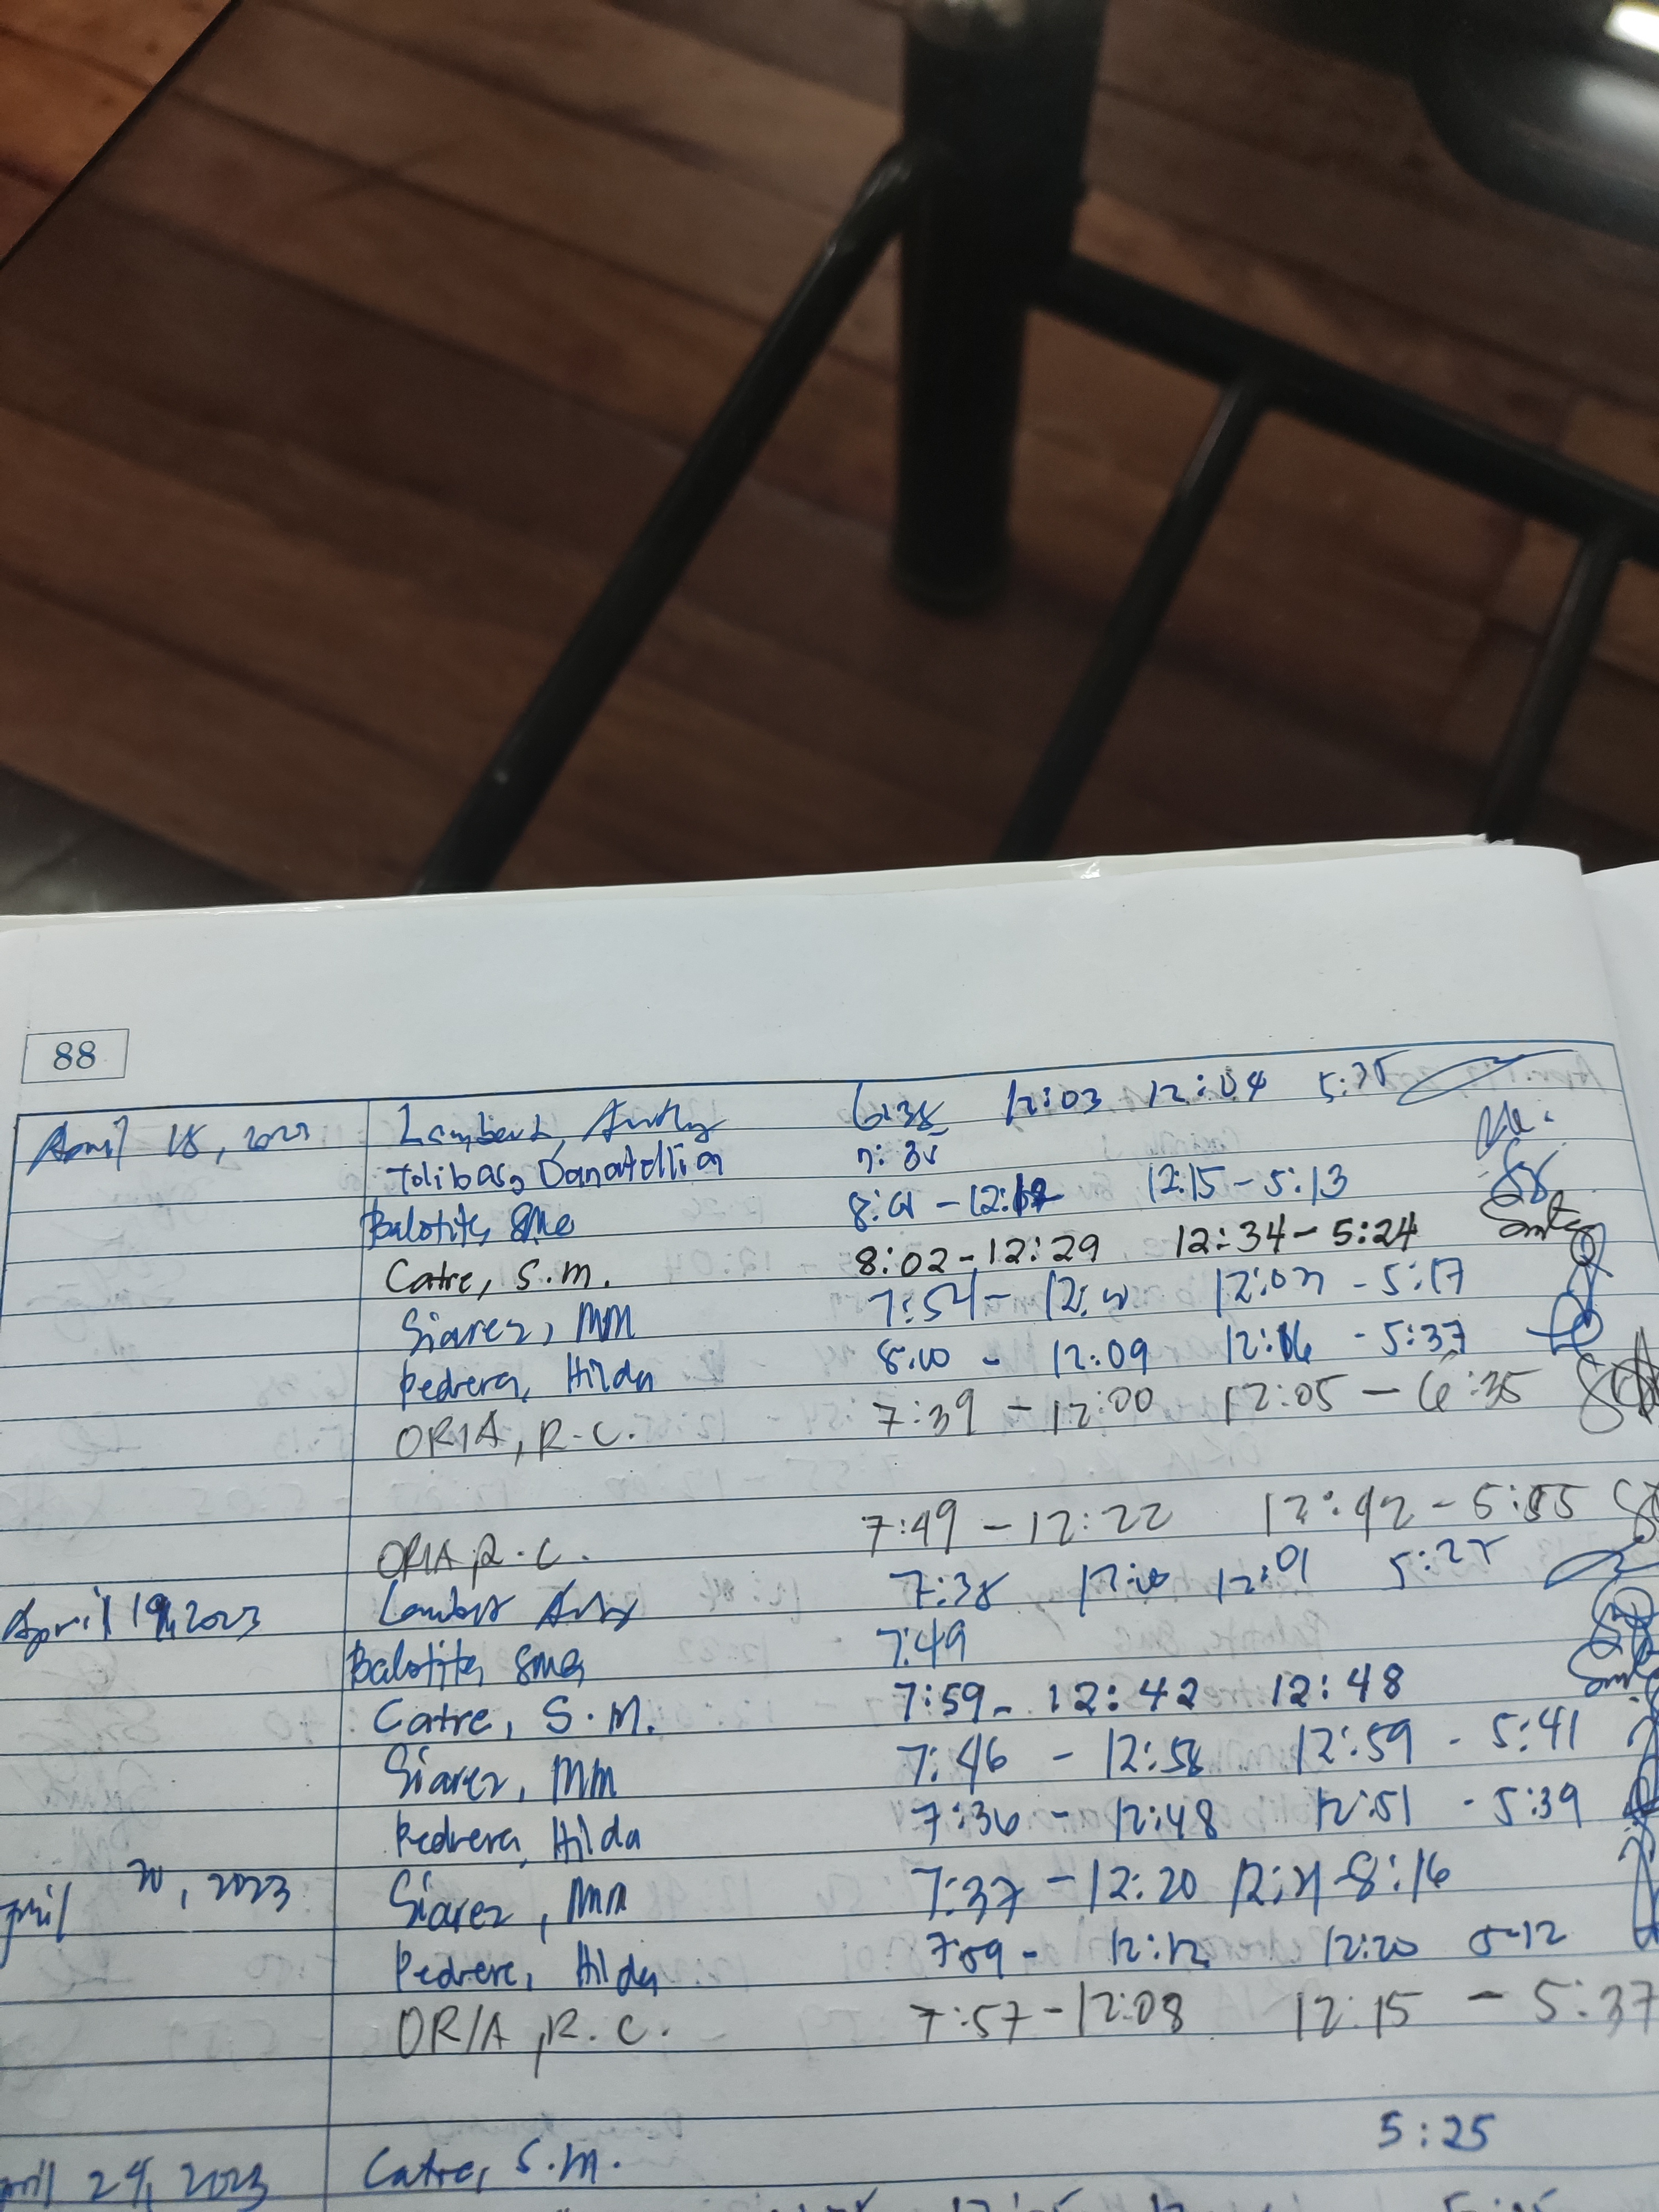 88
April 18, 2023 Lambert, 6:38 12:03 12:04 5:35
Tolibas, Danatellia 7:35
Balotite, SMG 8:01 - 12:12 12:15 - 5:13
Catre, S.M. 8:02 - 12:29 12:34 - 5:24
Siarez, MM 7:54 - 12:03 - 5:17
Pedrera, Hilda 8:00 - 12:09 12:16 - 5:37
ORIA, R.C. 7:39 - 12:00 12:05 - 6:35
ORIA, R.C. 7:49 - 12:22 12:42 - 5:55
April 19, 2023 Lambert 7:38 12:00 12:01 5:25
Balotite, SMG 7:49
Catre, S.M. 7:59 - 12:42 12:48
Siarez, MM 7:46 - 12:58 12:59 - 5:41
Pedrera, Hilda 7:36 - 12:48 12:51 - 5:39
April 20, 2023 Siarez, MM 7:37 - 12:20 12:21 - 8:16
Pedrera, Hilda 7:59 - 12:12 12:20 5:12
ORIA, R.C. 7:57 - 12:08 12:15 - 5:37
5:25
April 24, 2023 Catre, S.M.